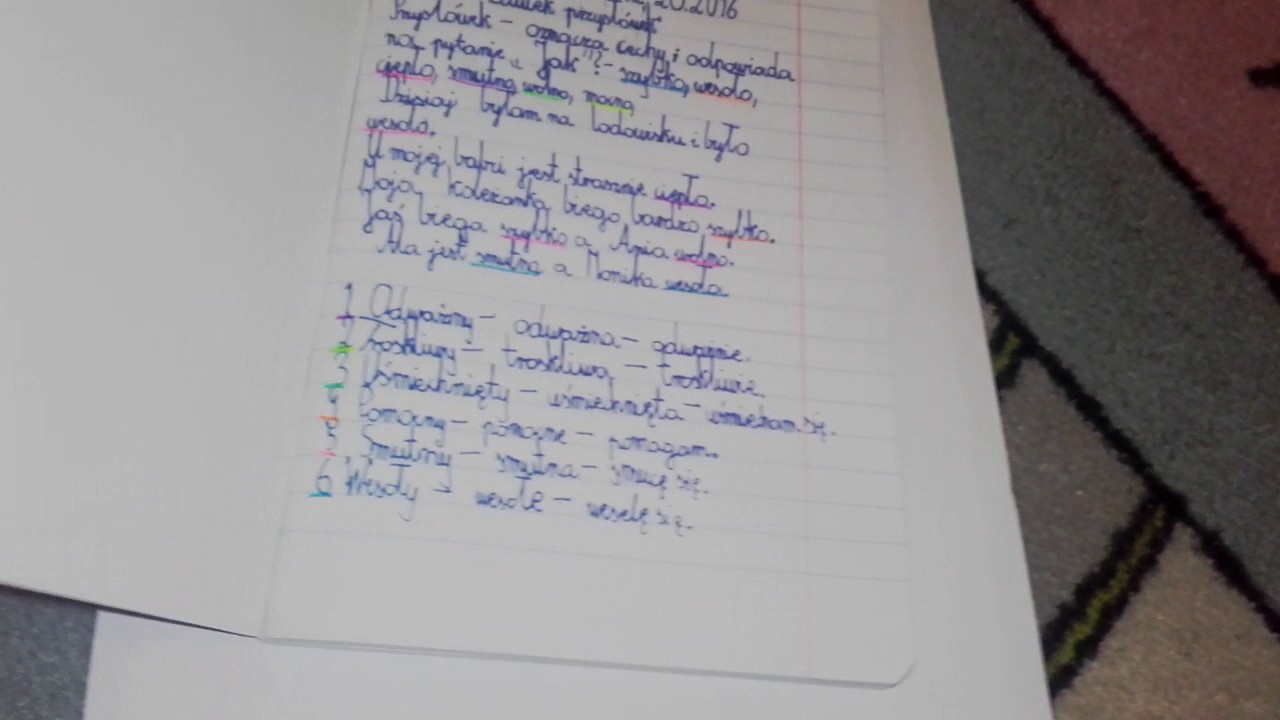 20.2016
przysłówek
Przysłówek - oznacza cechy i odpowiada
na pytanie „Jak"? - szybko, wesoło,
ciepło, smutno, wolno, mocno
Dzisiaj byłam na lodowisku i było
wesoło.
U mojej babci jest strasznie ciepło.
Moja koleżanka biega bardzo szybko.
Jaś biega szybko a Ania wolno.
Ala jest smutna a Monika wesoła
1 Odważny - odważna - odważnie.
2 Troskliwy - troskliwa - troskliwie.
3 Uśmiechnięty - uśmiechnięta - uśmiecham się.
4 Pomocny - pomocne - pomagam.
5. Smutny - smutna - smucę się.
6 Wesoły - wesołe - weselę się.